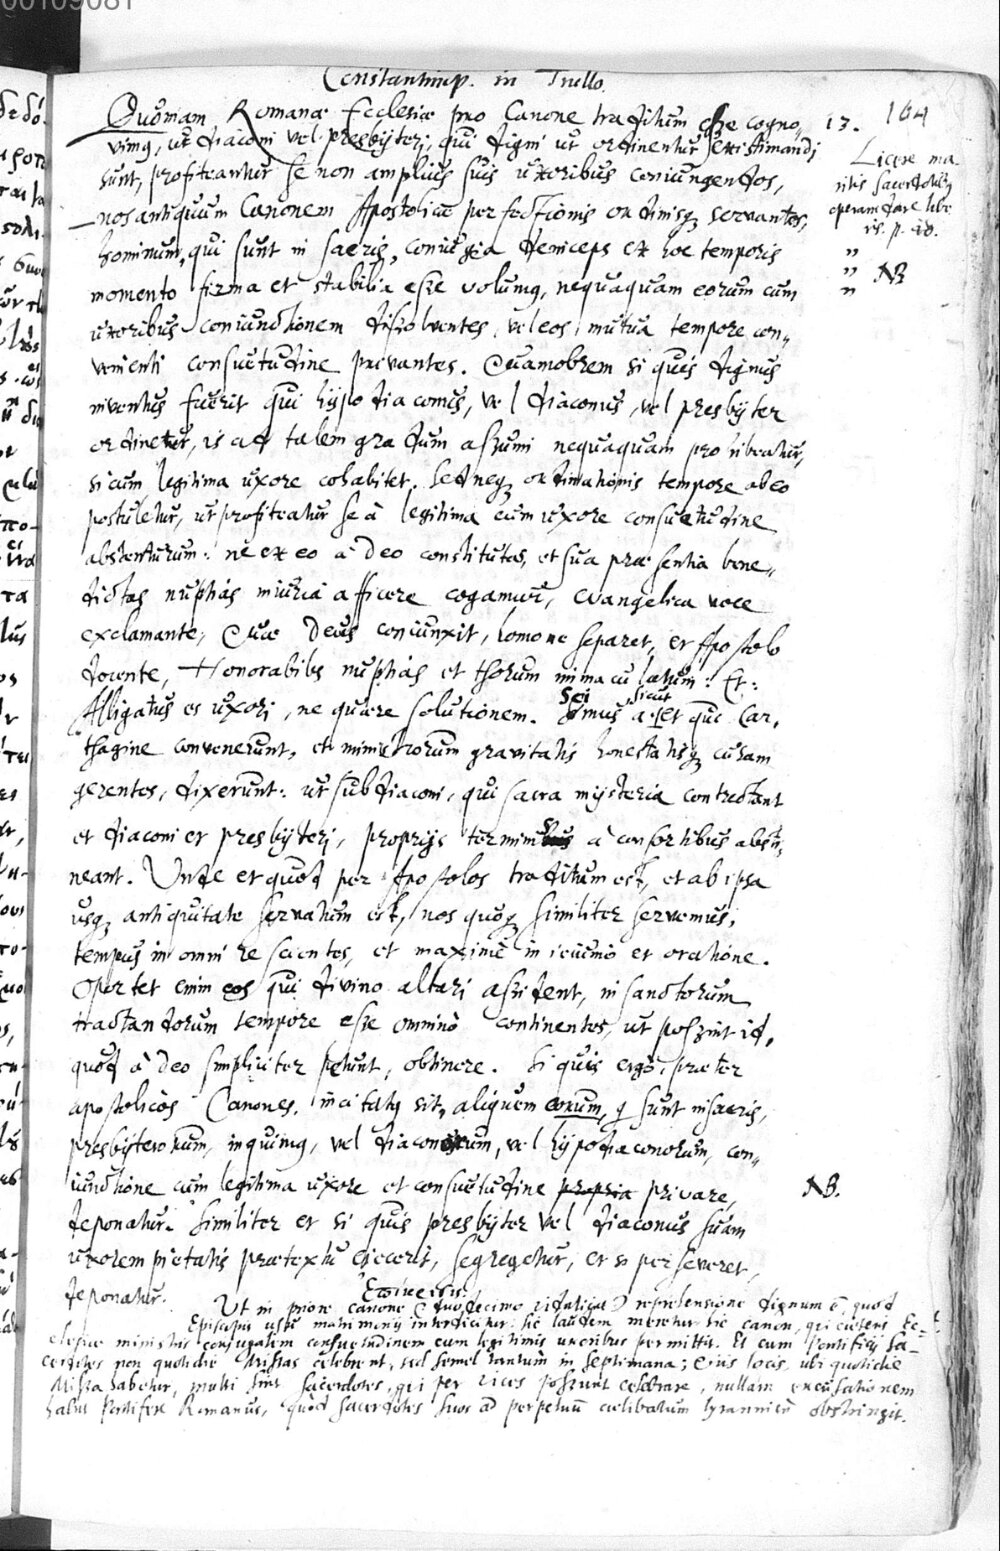 00109081
Constantinop. in Trullo.
164
Quoniam Romanae Ecclesiae pro Canone traditum esse cogno„ 13.
vimus, ut diaconi vel presbyteri, qui digni ut ordinentur existimandi
sunt, profiteantur se non amplius suis uxoribus coniungendos,
nos antiquum Canonem Apostolicae perfectionis ordinisq servantes,
hominum, qui sunt in sacris, coniugia deinceps ex hoc temporis
momento firma et stabilia esse volumus, nequaquam eorum cum
uxoribus coniunctionem dissolventes, vel eos mutua tempore con„
venienti consuetudine privantes. Quamobrem si quis dignus
inventus fuerit qui hypodiaconus, vel diaconus, vel presbyter
ordinetur, is ad talem gradum assumi nequaquam prohibeatur,
si cum legitima uxore cohabitet. Sed neq ordinationis tempore ab eo
postuletur, ut profiteatur se à legitima cum uxore consuetudine
abstenturum: ne ex eo à Deo constitutas, et sua praesentia bene„
dictas nuptias iniuria afficere cogamur, evangelica voce
exclamante, Quae Deus coniunxit, homo ne separet, et Apostolo
docente, Honorabiles nuptias et thorum immaculatum: Et:
Alligatus es uxori, ne quaere solutionem. Scimus sicut et qui Car„
thagine convenerunt, et ministrorum gravitatis honestatisq curam
gerentes, dixerunt: ut subdiaconi, qui sacra mysteria contrectant
et diaconi et presbyteri, proprijs terminis à consortibus absti„
neant. Unde et quod per Apostolos traditum est, et ab ipsa
usq antiquitate servatum est, nos quoq similiter servemus,
tempus in omni re scientes, et maximè in ieiunio et oratione.
Oportet enim eos qui divino altari assident, in sanctorum
tractandorum tempore esse omnino continentes, ut possint id,
quod à Deo simpliciter petunt, obtinere. Si quis ergo, praeter
apostolicos Canones, incitatus sit, aliquem eorum, q sunt in sacris,
presbyterorum, inquimus, vel diaconorum, vel hypodiaconorum, con„
iunctione cum legitima uxore et consuetudine propria privare,
deponatur. Similiter et si quis presbyter vel diaconus suam
uxorem pietatis praetextu eiecerit, segregetur, et si perseveret,
deponatur.
Licere ma
ritis sacerdotibus
operam dare libe
ris. p.
„
„ NB
„
NB.
Ut in priore canone (duodecimo videlicet) reprehensione dignum ē, quod
Episcopis usū matrimonij interdicitur: sic laudem meretur hic canon, qui ceteris Ec-
clesiae ministris conjugalem consuetudinem cum legitimis uxoribus permittit. Et cum Pontificij Sa-
cerdotes non quotidie Missas celebrent, sed semel tantum in septimana; et in locis ubi quotidie
Missa habetur, multi sint sacerdotes, qui per vices possunt celebrare, nullam excusationem
habet Pontifex Romanus, quod sacerdotes suos ad perpetuū caelibatum tyrannicè obstringit.